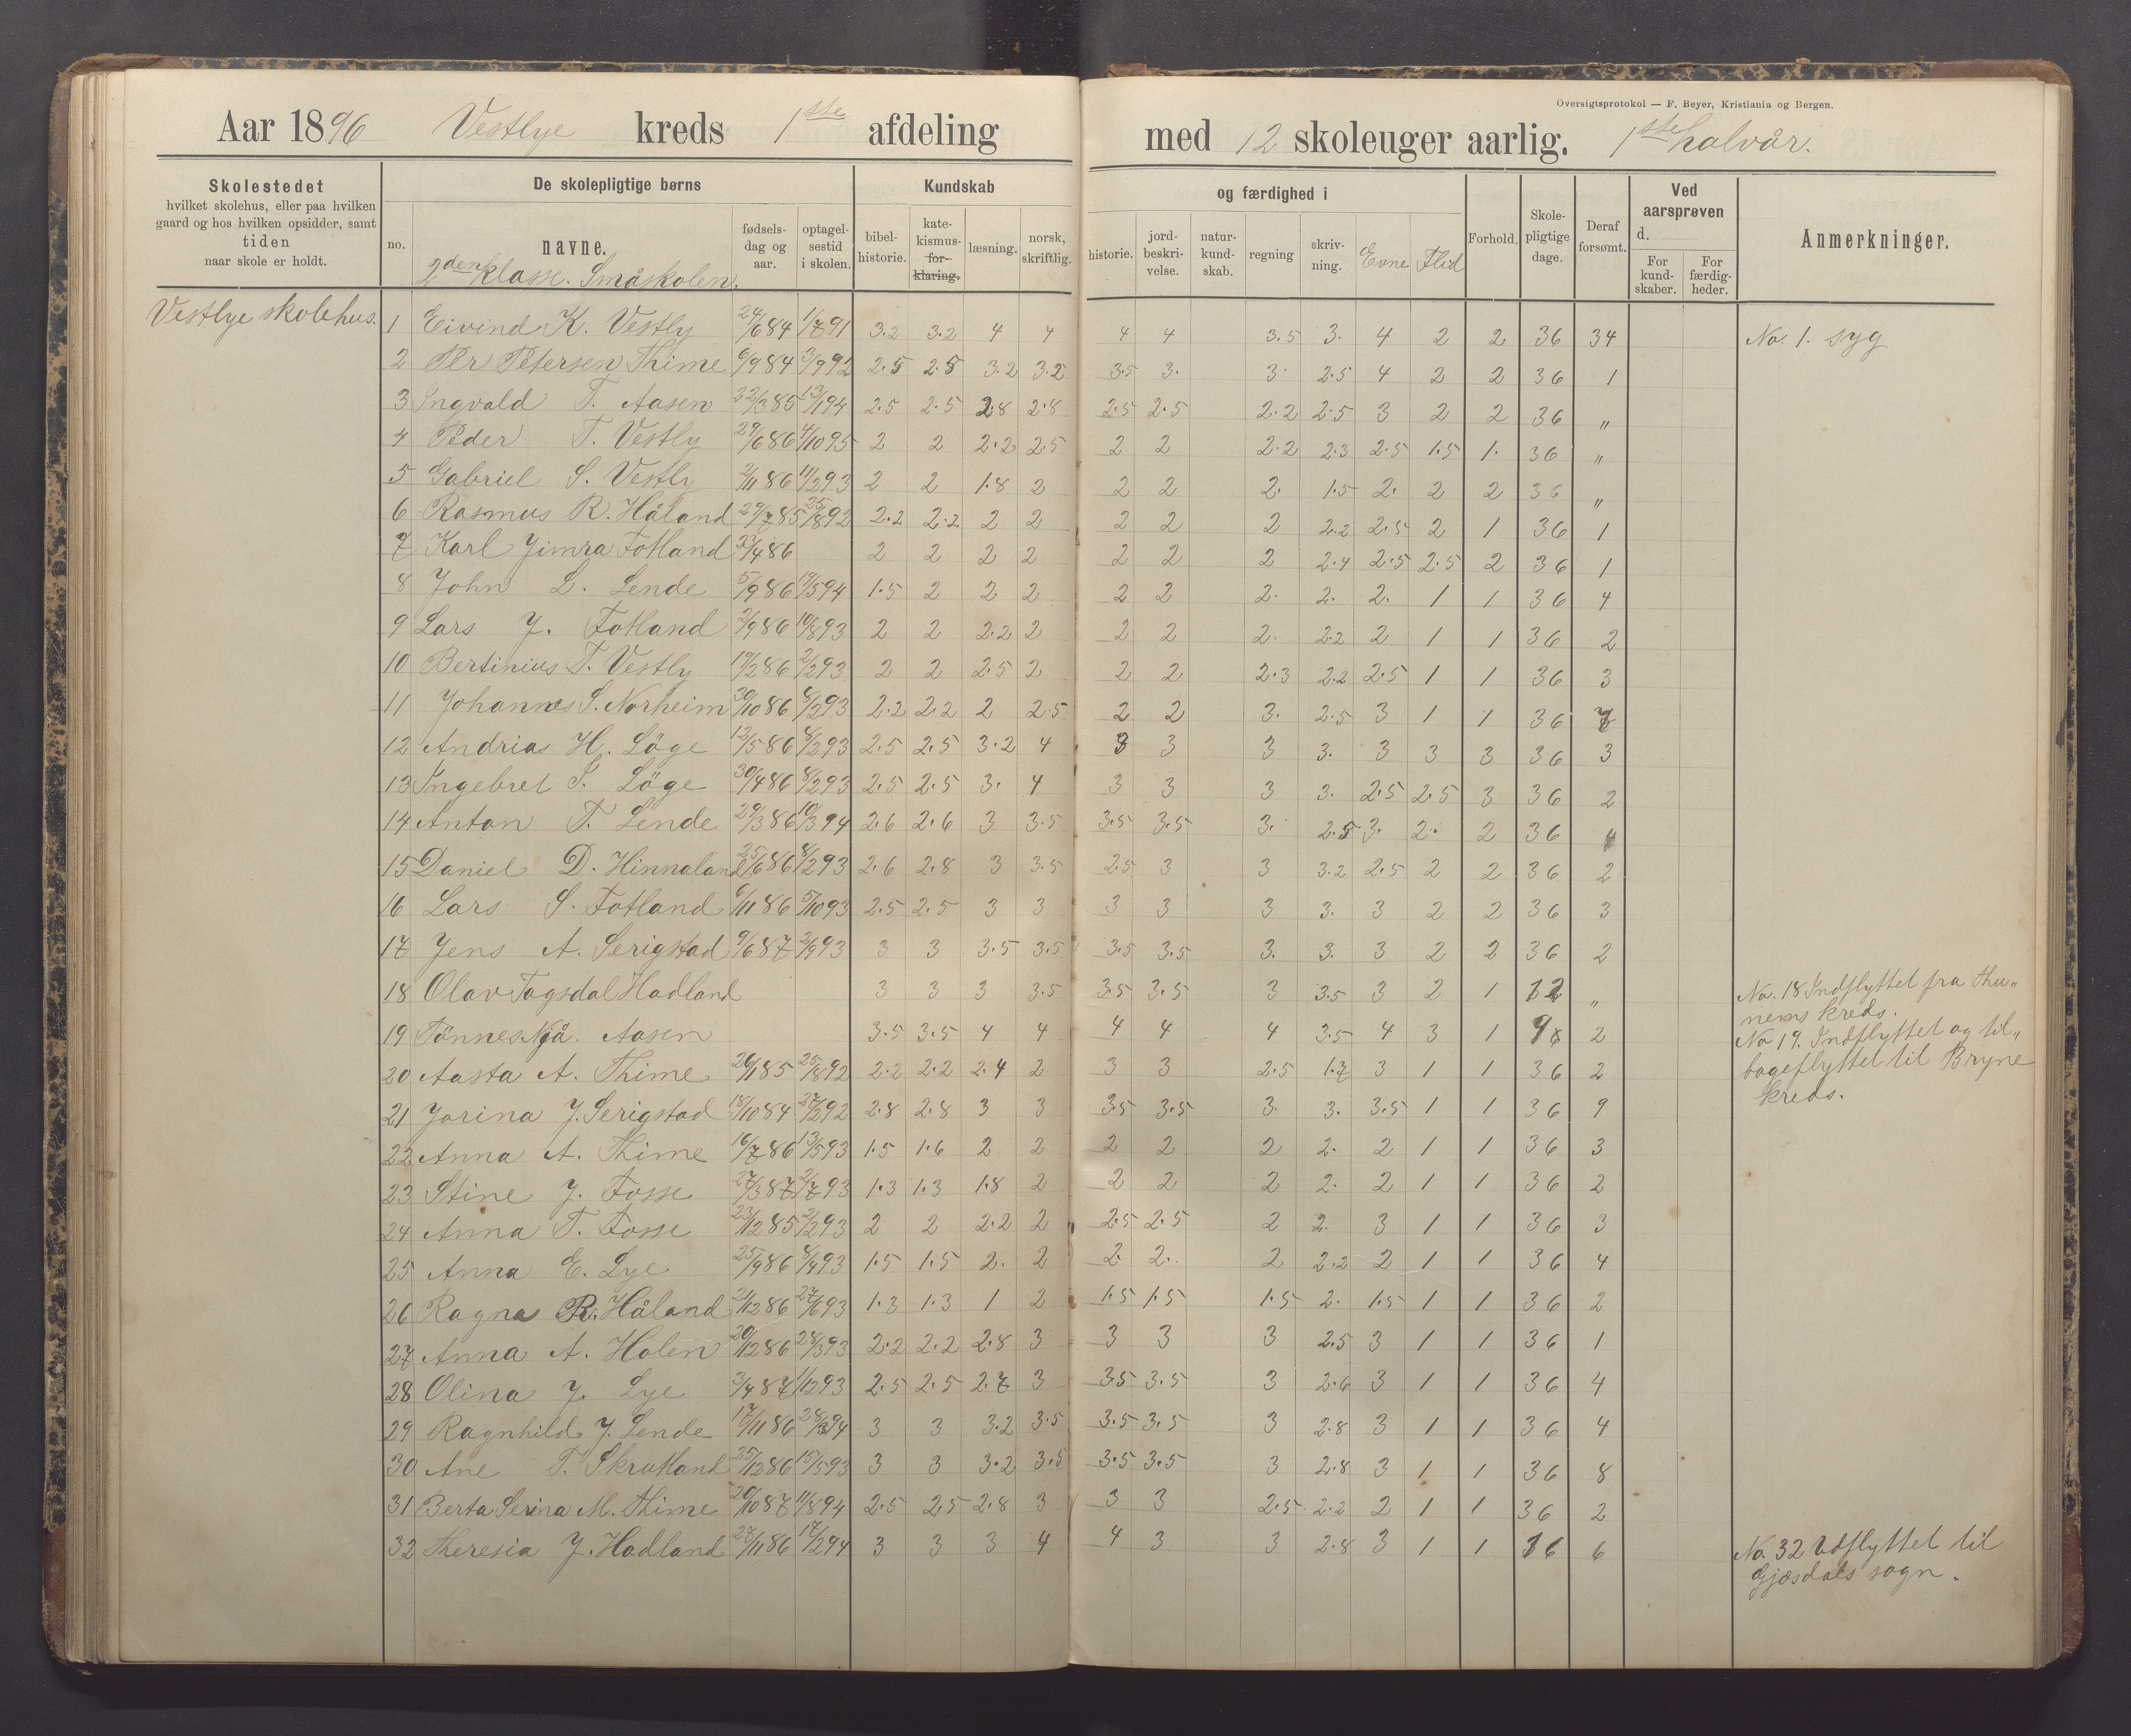 Oversigtsprotokol — F. Beyer, Kristiania og Bergen.
Aar 1896 Vestlye kreds 1ste afdeling med 12 skoleuger aarlig. 1ste halvår.
Skolestedet
hvilket skolehus, eller paa hvilken
gaard og hos hvilken opsidder, samt
tiden
naar skole er holdt.
De skolepligtige børns
no.
navne.
2den klasse. Småskolen.
fødsels-
dag og
aar.
optagel-
sestid
i skolen.
Kundskab og færdighed i
bibel-
historie.
kate-
kismus-
for-
klaring.
læsning.
norsk,
skriftlig.
historie.
jord-
beskri-
velse.
natur-
kund-
skab.
regning
skriv-
ning.
Evne
Flid
Forhold.
Skole-
pligtige
dage.
Deraf
forsømt.
Ved
aarsprøven
d.
For
kund-
skaber.
For
færdig-
heder.
Anmerkninger.
Vestlye skolehus.
1 Eivind K. Vestly 24/6 84 1/7 91 3.2 3.2 4 4 4 4 3.5 3. 4 2 2 36 34 No. 1. syg
2 Per Petersen Thime 6/9 84 3/9 92 2.5 2.5 3.2 3.2 3.5 3. 3. 2.5 4 2 2 36 1
3 Ingvald T. Aasen 22/3 85 13/1 94 2.5 2.5 2.8 2.8 2.5 2.5 2.2 2.5 3 2 2 36 "
4 Peder T. Vestly 29/6 86 4/10 95 2 2 2.2 2.5 2 2 2.2 2.3 2.5 1.5 1. 36 "
5 Gabriel S. Vestly 2/11 86 11/2 93 2 2 1.8 2 2 2 2. 1.5 2. 2 2 36 "
6 Rasmus R. Håland 29/7 85 25/8 92 2.2 2.2 2 2 2 2 2 2.2 2.5 2 1 36 1
7 Karl Jimra Fotland 23/4 86 2 2 2 2 2 2 2 2.4 2.5 2.5 2 36 1
8 John L. Lende 5/9 86 19/5 94 1.5 2 2 2 2 2 2. 2. 2. 1 1 36 4
9 Lars J. Fotland 2/9 86 10/8 93 2 2 2.2 2 2 2 2. 2.2 2 1 1 36 2
10 Bertinius T. Vestly 19/2 86 2/2 93 2 2 2.5 2 2 2 2.3 2.2 2.5 1 1 36 3
11 Johannes S. Norheim 30/10 86 8/2 93 2.2 2.2 2 2.5 2 2 3. 2.5 3 1 1 36 7
12 Andrias H. Löge 12/5 86 8/2 93 2.5 2.5 3.2 4 3 3 3 3. 3 3 3 36 3
13 Ingebret S. Löge 30/4 86 8/2 93 2.5 2.5 3. 4 3 3 3 3. 2.5 2.5 3 36 2
14 Anton T. Lende 29/3 86 10/3 94 2.6 2.6 3 3.5 3.5 3.5 3. 2.5 3. 2. 2 36 4
15 Daniel D. Hinnaland 25/6 86 8/2 93 2.6 2.8 3 3.5 2.5 3 3 3.2 2.5 2 2 36 2
16 Lars S. Fotland 6/11 86 5/10 93 2.5 2.5 3 3 3 3 3 3. 3 2 2 36 3
17 Jens A. Serigstad 9/6 87 2/9 93 3 3 3.5 3.5 3.5 3.5 3. 3. 3 2 2 36 2
18 Olav Tagsdal Hadland 3 3 3 3.5 3.5 3.5 3 3.5 3 2 1 12 " No. 18 Indflyttet fra Thu-
nems kreds.
19 Tönnes Njå. Aasen 3.5 3.5 4 4 4 4 4 3.5 4 3 1 2 No 19. Indflyttet og til-
bageflyttet til Bryne
kreds.
20 Aasta A. Thime 26/1 85 25/8 92 2.2 2.2 2.4 2 3 3 2.5 1.7 3 1 1 36 2
21 Jorina J. Serigstad 18/10 84 27/2 92 2.8 2.8 3 3 3.5 3.5 3. 3. 3.5 1 1 36 9
22 Anna A. Thime 16/7 86 13/5 93 1.5 1.6 2 2 2 2 2 2. 2 1 1 36 3
23 Stine J. Fosse 27/3 87 2/7 93 1.3 1.3 1.8 2 2 2 2 2. 2 1 1 36 2
24 Anna T. Fosse 23/12 85 2/2 93 2 2 2.2 2 2.5 2.5 2 2. 3 1 1 36 3
25 Anna E. Lye 25/9 86 8/4 93 1.5 1.5 2. 2 2. 2. 2 2.2 2 1 1 36 4
26 Ragna R. Håland 21/12 86 27/6 93 1.3 1.3 1 2 1.5 1.5 1.5 2. 1.5 1 1 36 2
27 Anna A. Holen 20/12 86 28/3 93 2.2 2.2 2.8 3 3 3 3 2.5 3 1 1 36 1
28 Olina J. Lye 3/4 87 1/12 93 2.5 2.5 2.7 3 3.5 3.5 3 2.6 3 1 1 36 4
29 Ragnhild J. Lende 17/11 86 28/3 94 3 3 3.2 3.5 3.5 3.5 3 2.8 3 1 1 36 4
30 Ane T. Skrutland 25/12 86 15/5 93 3 3 3.2 3.5 3.5 3.5 3 2.8 3 1 1 36 8
31 Berta Serina M. Thime 20/10 87 11/8 94 2.5 2.5 2.8 3 3 3 2.5 2.2 2 1 1 36 2
32 Theresia J. Hadland 27/11 86 17/2 94 3 3 3 4 4 3 3 2.8 3 1 1 16 6 No. 32 Udflyttet til
Gjæsdals sogn.